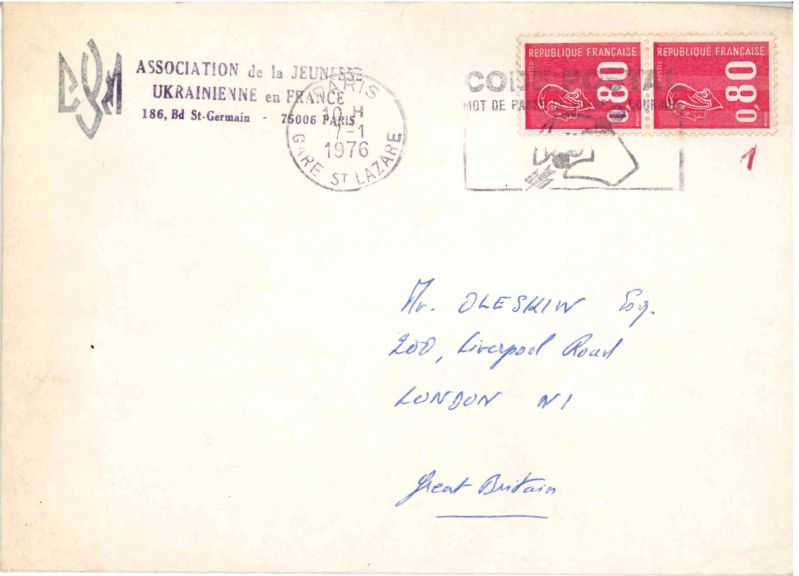 ASSOCIATION de la JEUNESSE
UKRAINIENNE en FRANCE
186, Bd St-Germain - 75006 PARIS
PARIS
10 H
7-1
1976
GARE ST LAZARE
CODE POSTAL
MOT DE PASSE
REPUBLIQUE FRANÇAISE
0,80
REPUBLIQUE FRANÇAISE
0,80
1
Mr. OLESKIW Esq.
200, Liverpool Road
LONDON N1
Great Britain